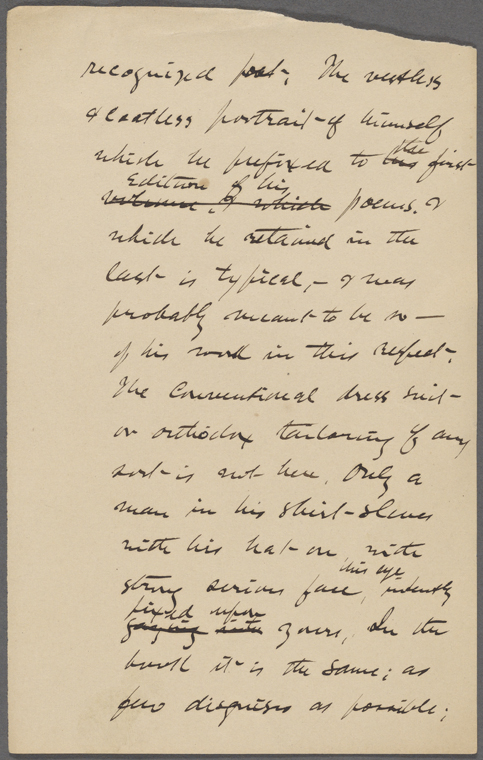 recognized poet. The vestless
& coatless portrait of himself
which he prefixed to his the first
Edition of his
volume of which poems, &
which he retained in the
last is typical, - & was
probably meant to be so —
of his work in this respect.
The conventional dress suit
or orthodox tailoring of any
sort is not here. Only a
man in his shirt-sleeves
with his hat on, with
his eye
strong serious face, intently
fixed upon
gazing into yours, In the
book it is the same; as
few disguises as possible;